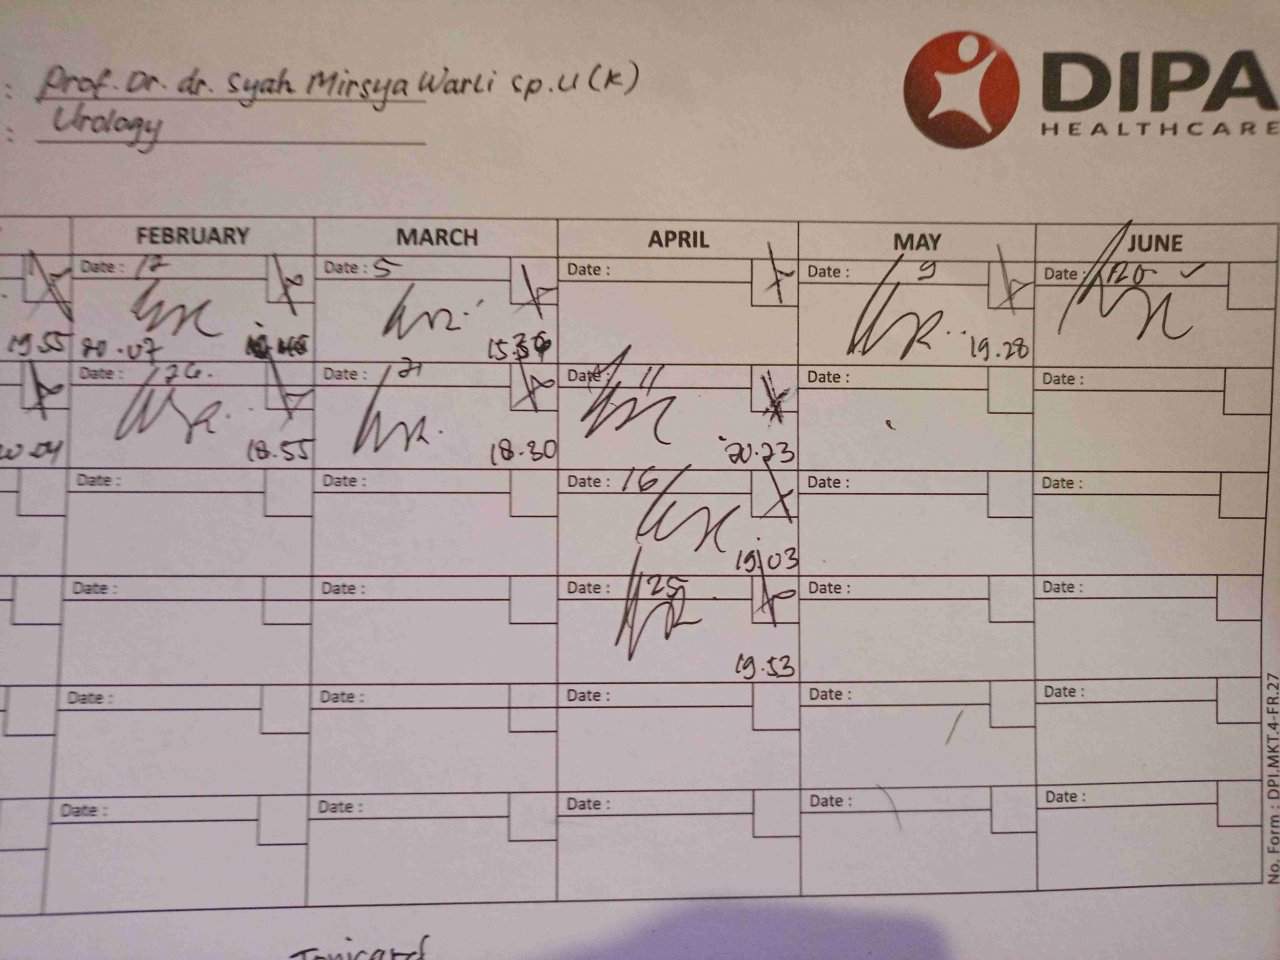 : Prof. Dr. dr. Syah Mirsya Warli Sp.U (K)
: Urology
DIPA
HEALTHCARE
FEBRUARY MARCH APRIL MAY JUNE
Date : 12 Date : 5 Date : Date : 9 Date : 20
19.55 20.07 15.36 19.28
Date : 26. Date : 21 Date : 11 Date : Date :
20.04 18.55 18.30 20.23
Date : Date : Date : 16 Date : Date :
19.03
Date : Date : Date : 25 Date : Date :
19.53
Date : Date : Date : Date : Date :
Date : Date : Date : Date : Date :
No. Form : DPI.MKT.4-FR.27